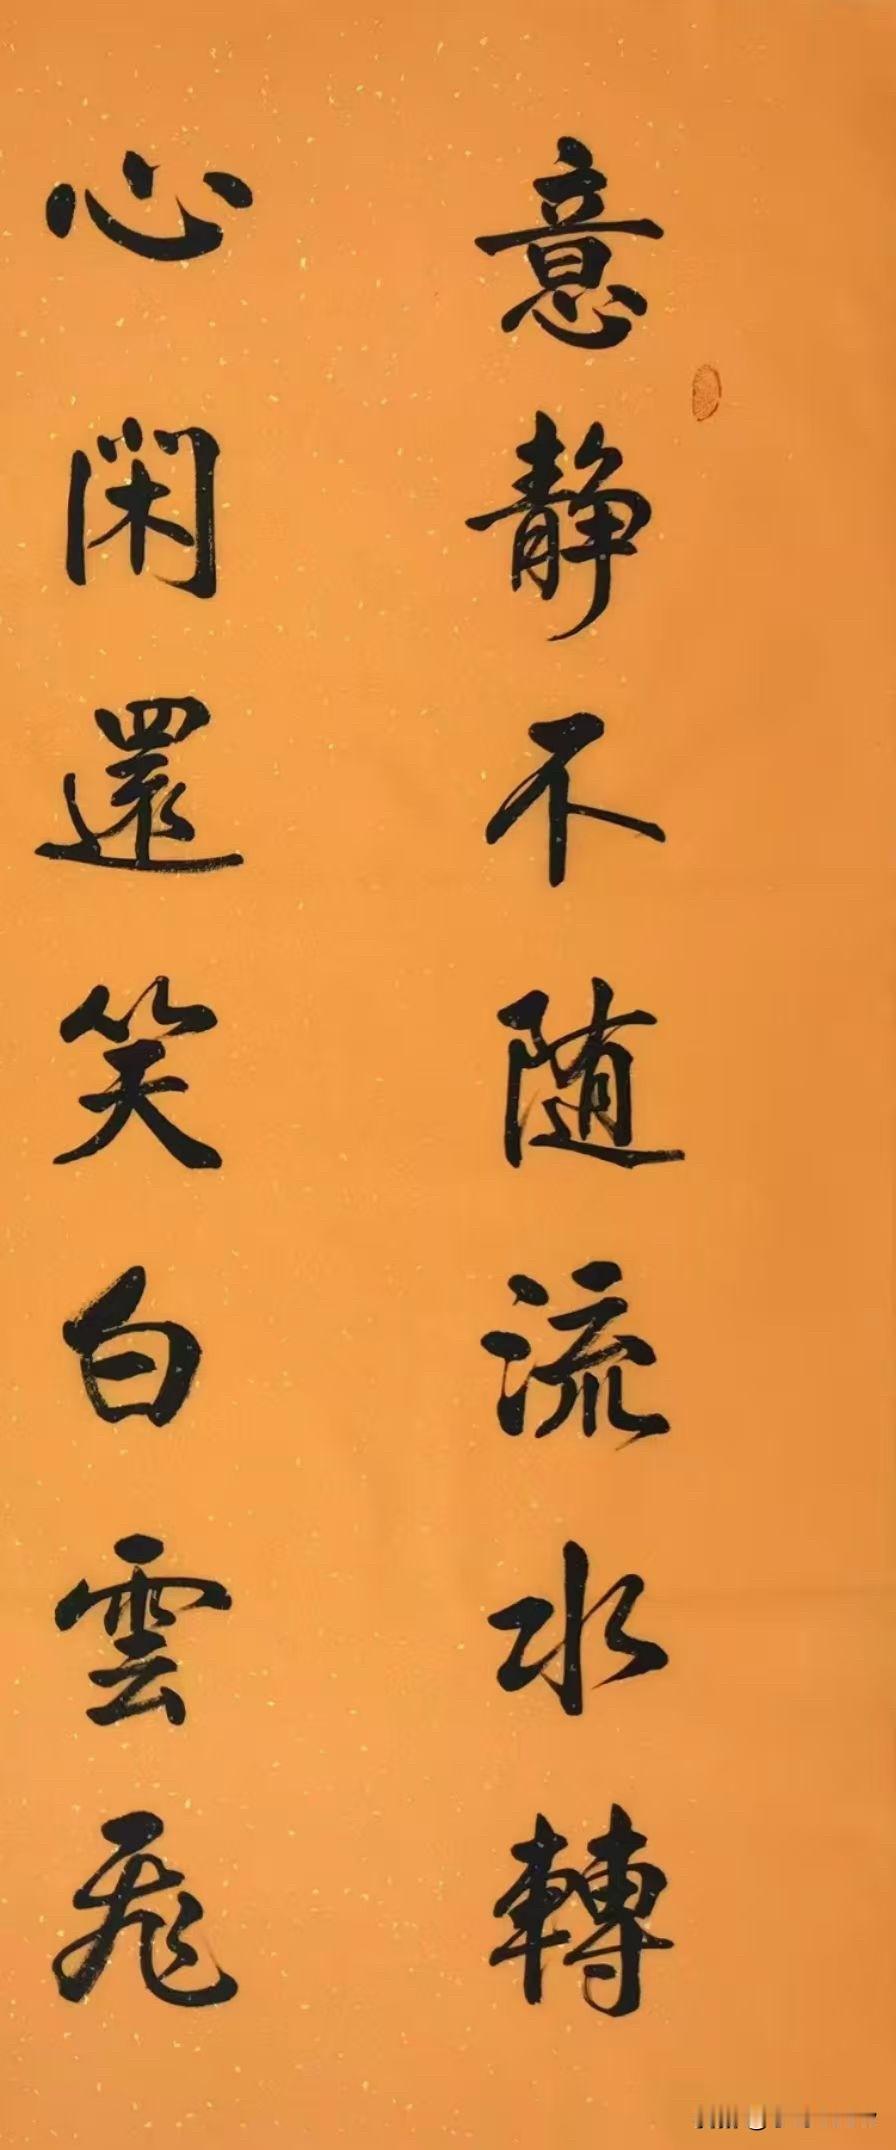 意静不随流水轉
心閑還笑白雲飛